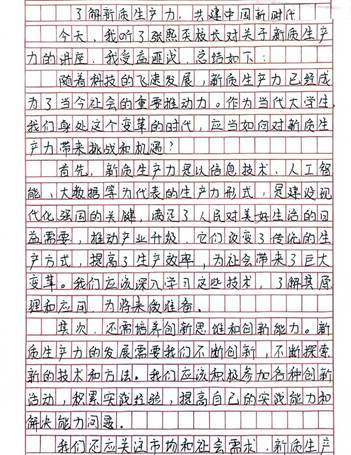 了解新质生产力，共建中国新时代
今天，我听了张熙英校长对关于新质生产
力的讲座，我受益匪浅，总结如下：
随着科技的飞速发展，新质生产力已经成
为了当今社会的重要推动力。作为当代大学生，
我们身处这个变革的时代，应当如何对新质生
产力带来挑战和机遇？
首先，新质生产力是以信息技术、人工智
能、大数据等为代表的生产力形式，是建设现
代化强国的关键，满足了人民对美好生活的日
益需要，推动产业升级。它们改变了传统的生
产方式，提高了生产效率，为社会带来了巨大
变革。我们应该深入学习这些技术，了解其原
理和应间，为将来做准备。
其次，还需培养创新思维和创新能力。新
质生产力的发展需要我们不断创新，不断探索
新的技术和方法。我们应该积极参加各种创新
活动，积累实践经验，提高自己的实践能力和
解决能力问题。
我们还应关注市场和社会需求，新质生产